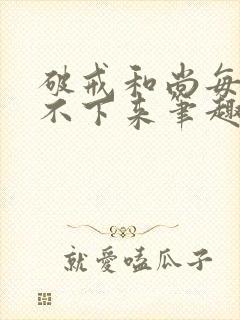 破戒和尚每
不下来笔趣
就愛嗑瓜子